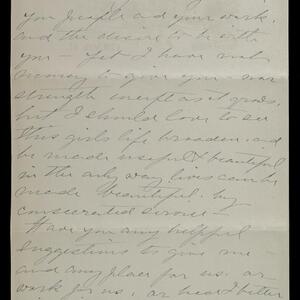 you people and your work,
and the desire to be with
you - yet I have not
money to give you - nor
strength except as it grows,
but I should love to see
this girls life broaden and
be made useful & beautiful
in the only way lives can be
made beautiful - by
consecrated service -
Have you any helpful
suggestions to give me -
and any place for us, or
work for us, or had I better